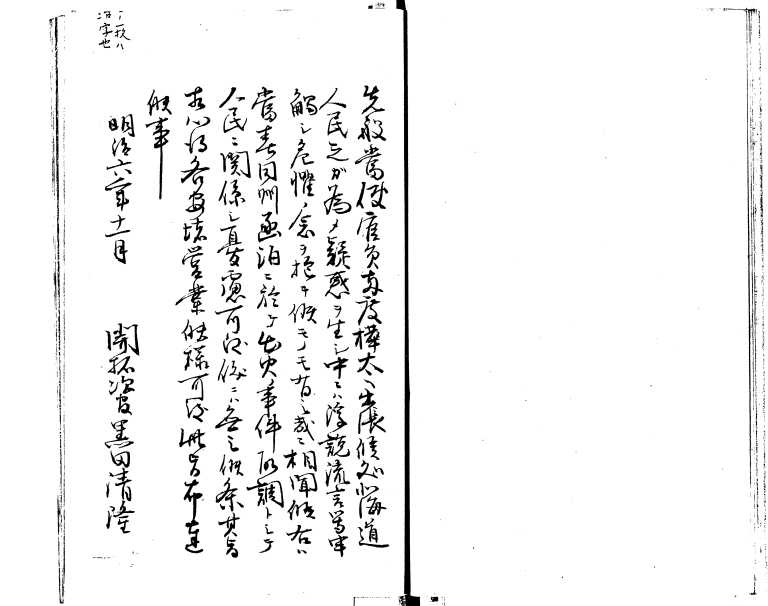 先般當使官員両度樺太ヘ出張候処北海道
人民之カ為メ疑惑ヲ生シ中ニハ浮説流言等牢
觸シ危懼ノ念ヲ抱キ候モノモ有之哉ニ相聞候右ハ
當春同州函泊ニ於テ出火事件取調トシテ
人民ニ関係シ憂慮可致儀ニハ無之候条其旨
相心得各安堵営業候様可致此旨布達
候事
明治六年十一月
開拓次官黒田清隆